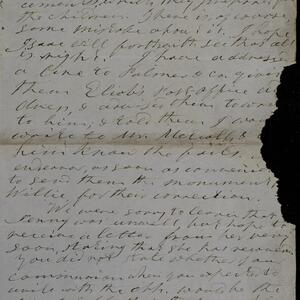 the children. There is, of course,
some mistake about it. I hope
Isaac will forthwith see that all
is right. I have addressed
a line to Palmer & Co. giving
them Elieb's Post office ad
dress, & advised them to write
to him; & told them I would
write to Mr. Metcalf &
him know the facts.
endeavor, as soon as convenient
to send them the monument
Willie, for their correction.
We were sorry to learn that
was unwell, but hope to
receive a letter from her very
soon, stating that she has recovered
You did not state whether
Communion when you expected to
unite with the Chh. would be the